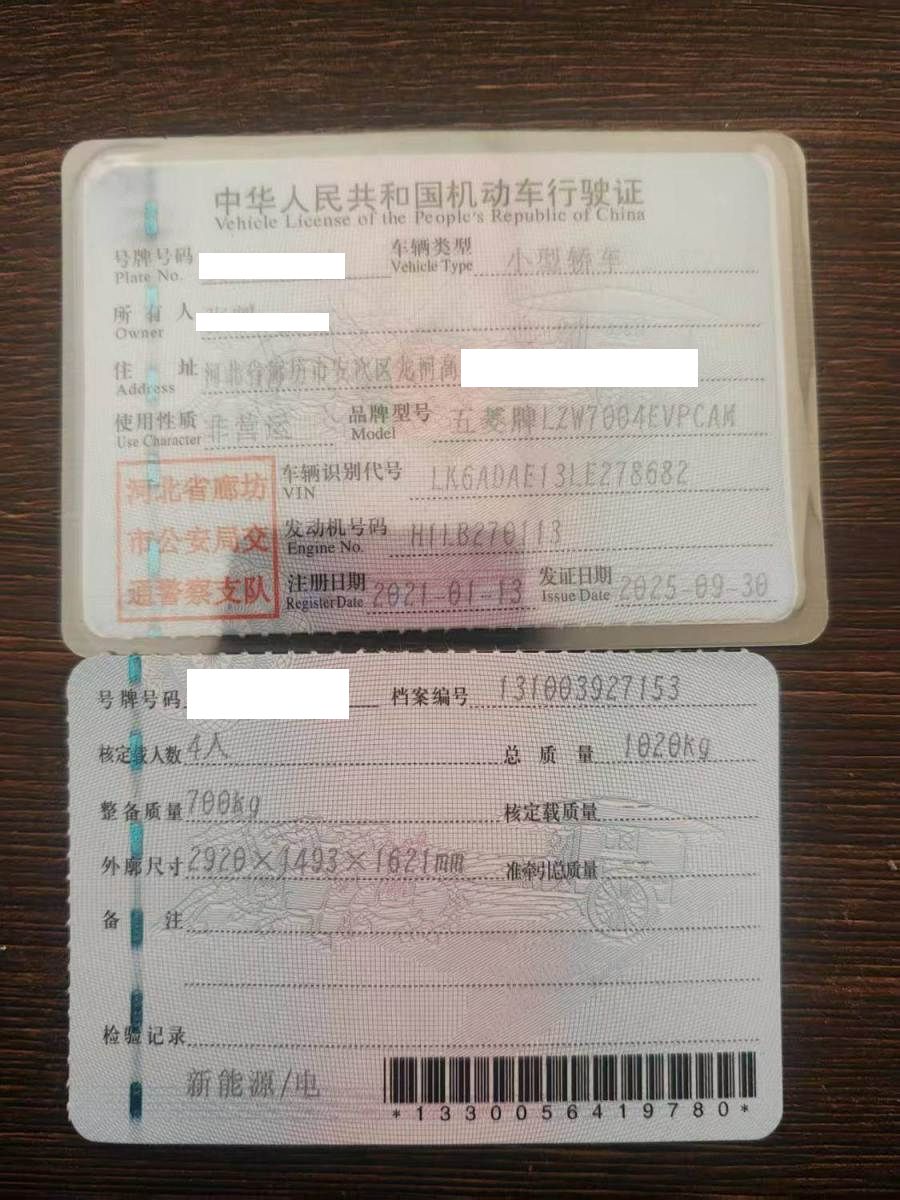 中华人民共和国机动车行驶证
Vehicle License of the People's Republic of China
号牌号码 车辆类型 小型轿车
Plate No. Vehicle Type
所有人
Owner
住址 河北省廊坊市安次区北河
Address
使用性质 非营运 品牌型号 五菱牌LZW7004EVPCAM
Use Character Model
河北省廊坊 车辆识别代号 LK6ADAE13LE278682
VIN
市公安局交 发动机号码 H11LB270113
Engine No.
通警察支队 注册日期 2021-01-13 发证日期 2025-09-30
Register Date Issue Date
号牌号码 档案编号 131003927153
核定载人数 4人 总质量 1020kg
整备质量 700kg 核定载质量
外廓尺寸 2920×1493×1621mm 准牵引总质量
备注
检验记录
新能源/电
*1330056419780*